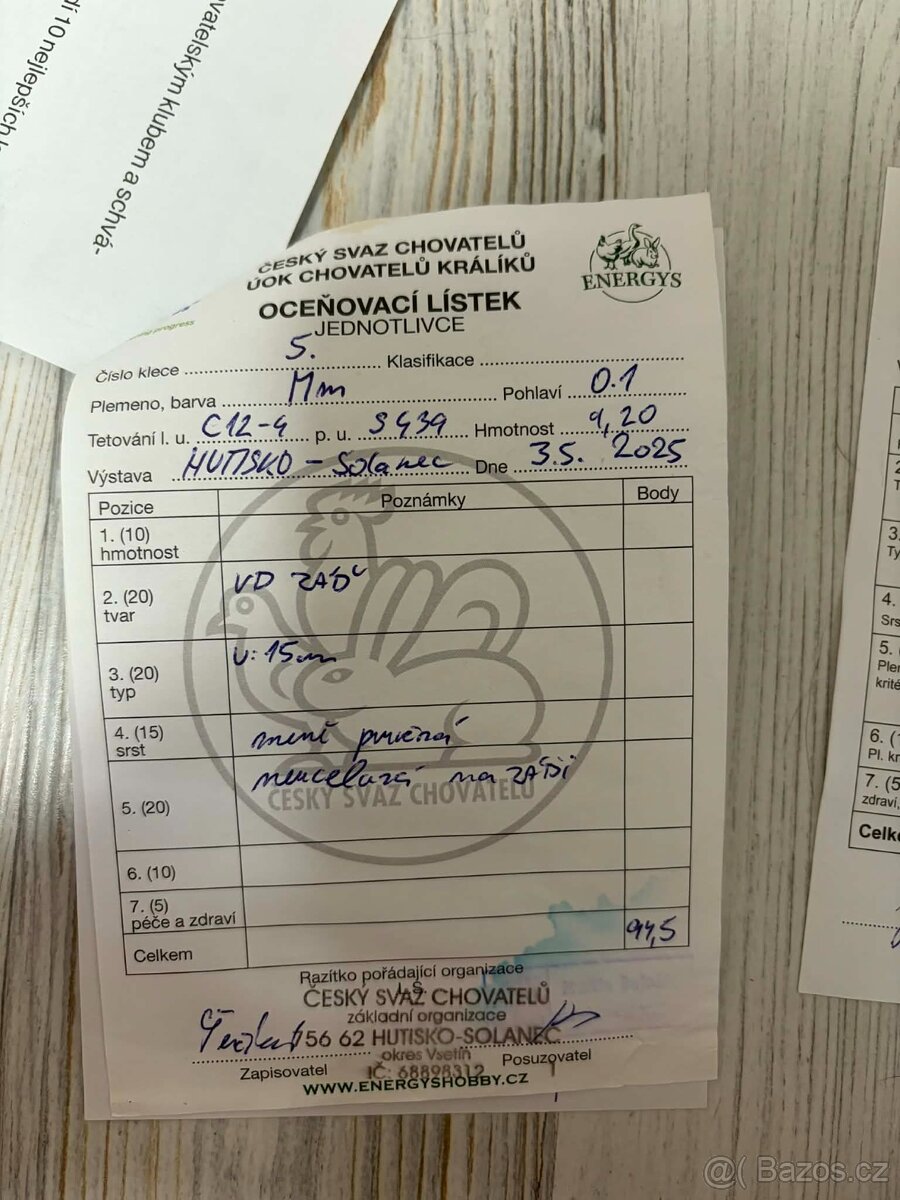 dí 10 nejlepších
vatelským klubem a schvá-
ČESKÝ SVAZ CHOVATELŮ
ÚOK CHOVATELŮ KRÁLÍKŮ
ENERGYS
OCEŇOVACÍ LÍSTEK
JEDNOTLIVCE
progress
Číslo klece 5. Klasifikace
Plemeno, barva Mm Pohlaví 0.1
Tetování l. u. C12-4 p. u. S439 Hmotnost 9,20
Výstava HUTISKO - Solanec Dne 3.5. 2025
Pozice Poznámky Body
1. (10)
hmotnost
2. (20) VD ZÁĎ
tvar
3. (20) U: 15cm
typ
4. (15) méně pružná
srst
5. (20) na zádi
ČESKÝ SVAZ CHOVATELŮ
6. (10)
7. (5)
péče a zdraví
Celkem 94,5
Razítko pořádající organizace
L.S.
ČESKÝ SVAZ CHOVATELŮ
základní organizace
756 62 HUTISKO-SOLANEC
okres Vsetín
Zapisovatel IČ: 68898312 Posuzovatel
WWW.ENERGYSHOBBY.CZ
3.
Ty
4.
Srs
5. (
Plem
krité
6. (1
Pl. kr
7. (5
zdraví,
Celke
@( Bazos.cz